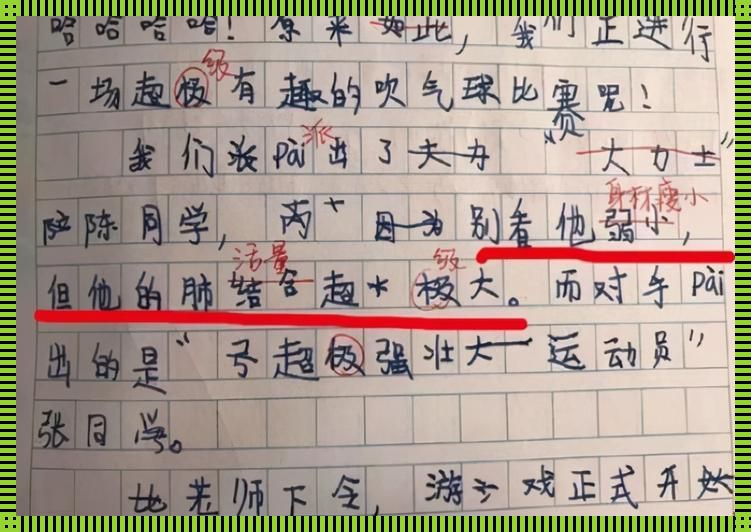 哈哈哈哈哈！原来如此，我们正进行
级
一场超极有趣的吹气球比赛呢！
派
我们派pài出了大力“大力士”
身材瘦小
陈同学，因为别看他弱小，
活量 级
但他的肺结含超大极大。而对手pài
出的是“号超极强壮大运动员”
张同学。
老师下令，游戏正式开始